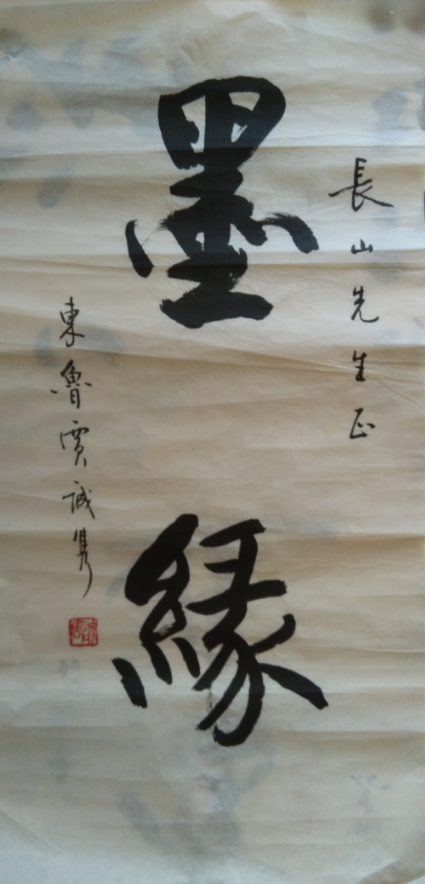 長山先生正
墨緣
東魯賈誠隽